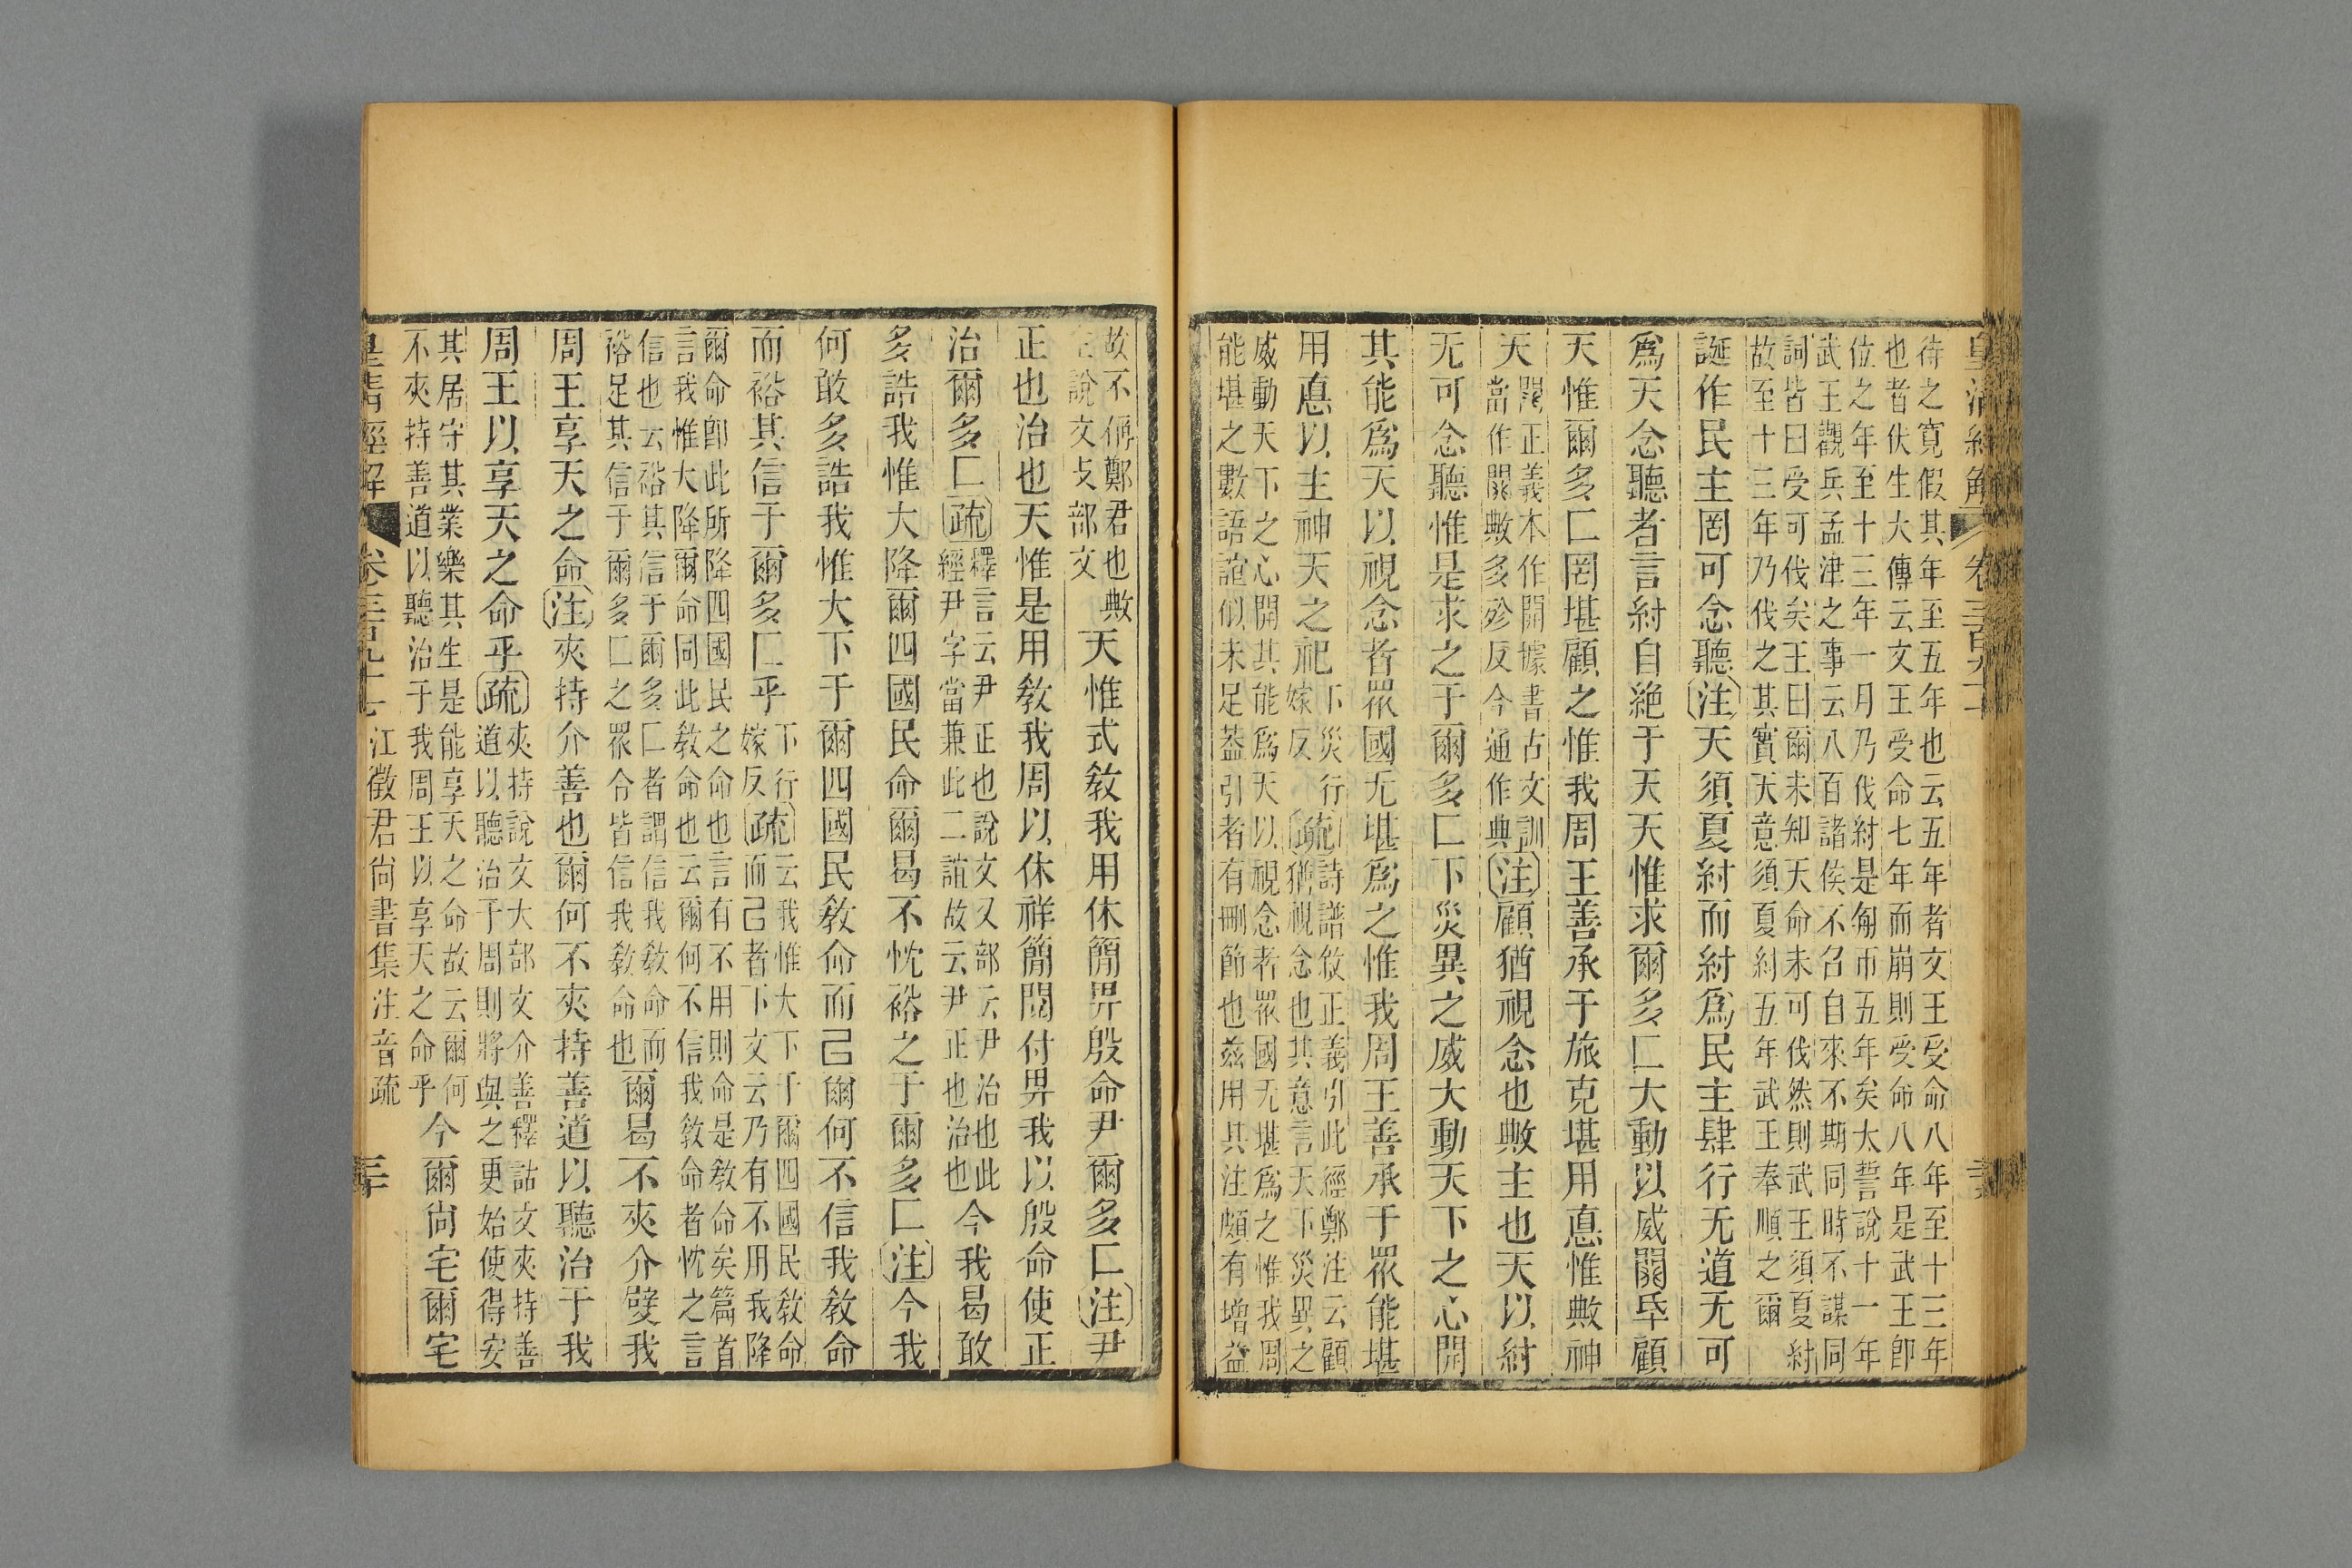 皇清經解
卷三百九十七
待之寬假其年至五年也云五年者文王受命八年至十三年
也者伏生大傳云文王受命七年而崩則受命八年是武王卽
位之年至十三年一月乃伐紂是匑帀五年矣大誓說十一年
武王觀兵孟津之事云八百諸侯不召自來不期同時不謀同
詞皆曰受可伐矣王曰爾未知天命未可伐然則武王須夏紂
故至十三年乃伐之其實天意須夏紂五年武王奉順之爾
誕作民主罔可念聽注天須夏紂而紂爲民主肆行无道无可
爲天念聽者言紂自絶于天天惟求爾多匚大動以威闓氒顧
天惟爾多匚罔堪顧之惟我周王善承于旅克堪用悳惟敟神
天
闓正義本作開據書古文訓
當作闓敟多殄反今通作典
注顧猶視念也敟主也天以紂
无可念聽惟是求之于爾多匚下災異之威大動天下之心開
其能爲天以視念者眾國无堪爲之惟我周王善承于眾能堪
用悳以主神天之祀
下災行
嫁反
疏
詩譜敘正義引此經鄭注云顧
猶視念也其意言天下災異之
威動天下之心開其能爲天以視念者眾國无堪爲之惟我周
能堪之數語誼似未足葢引者有刪節也兹用其注頗有增益
故不偁鄭君也敟
說文攴部文
天惟式敎我用休簡畀殷命尹爾多匚注尹
正也治也天惟是用敎我周以休祥簡閱付畀我以殷命使正
治爾多匚疏
釋言云尹正也說文又部云尹治也此
經尹字當兼此二誼故云尹正也治也
今我曷敢
多誥我惟大降爾四國民命爾曷不忱裕之于爾多匚注今我
何敢多誥我惟大下于爾四國民敎命而己爾何不信我敎命
而裕其信于爾多匚乎
下行
嫁反
疏
云我惟大下于爾四國民敎命
而己者下文云乃有不用我降
爾命卽此所降四國民之命也言有不用則命是敎命矣篇首
言我惟大降爾命同此敎命也云爾何不信我敎命者忱之言
信也云裕其信于爾多匚者謂信我敎命而
裕足其信于爾多匚之眾令皆信我敎命也
爾曷不夾介乂我
周王享天之命注夾持介善也爾何不夾持善道以聽治于我
周王以享天之命乎疏
夾持說文大部文介善釋詁文夾持善
道以聽治于周則將與之更始使得安
其居守其業樂其生是能享天之命故云爾何
不夾持善道以聽治于我周王以享天之命乎
今爾尙宅爾宅
皇清經解
卷三百九十七
江徵君尙書集注音疏
三十